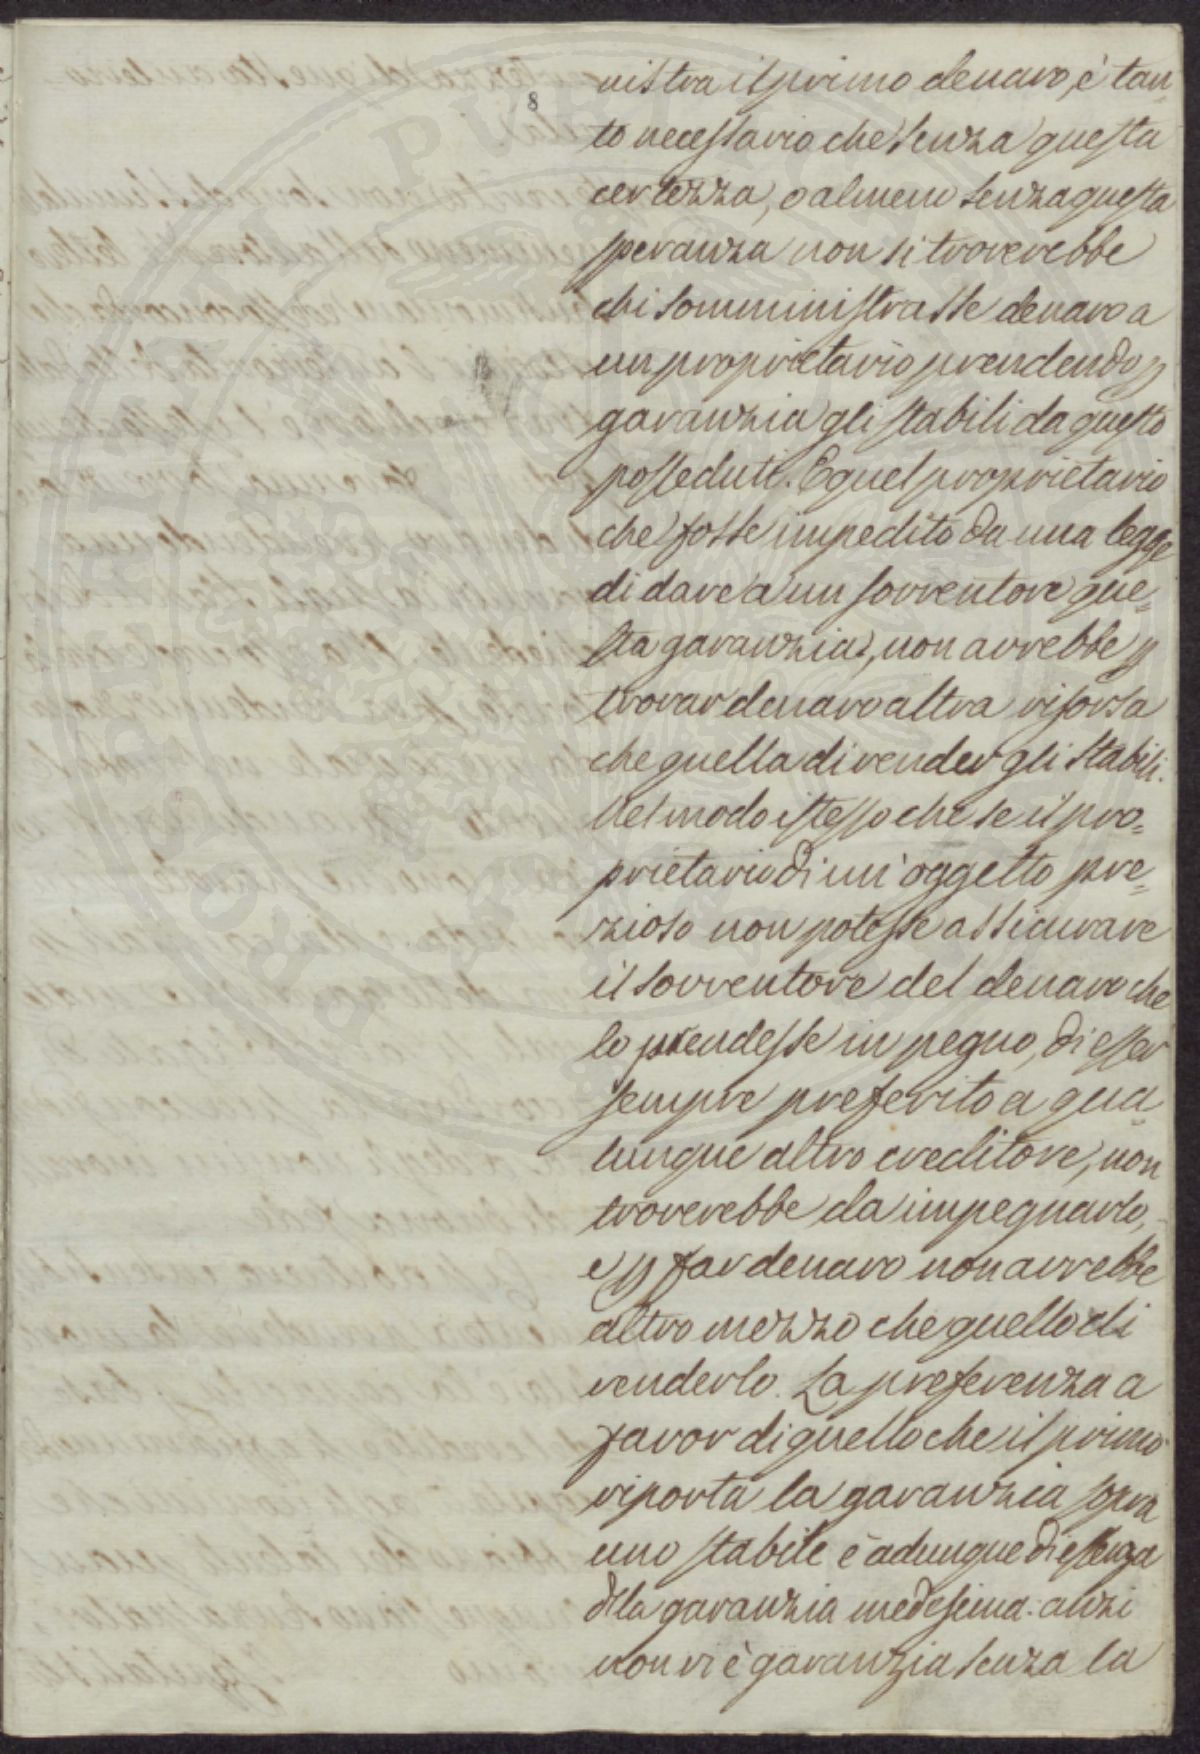 8
nistra il primo denaro, è tan=
to necessario che senza questa
certezza, o almeno senza questa
speranza non si troverebbe
chi somministrasse denaro a
un proprietario prendendo p
garanzia gli stabili da questo
posseduti. E quel proprietario
che fosse impedito da una legge
di dare a un sovventore que=
sta garanzia, non avrebbe p
trovar denaro altra risorsa
che quella di vender gli stabili.
Nel modo istesso che se il pro=
prietario di un' oggetto pre=
zioso non potesse assicurare
il sovventore del denaro che
lo prendesse in pegno, di esser
sempre preferito a qua
lunque altro creditore, non
troverebbe da impegnarlo,
e p far denaro non avrebbe
altro mezzo che quello di
venderlo. La preferenza a
favor di quello che il primo
riporta la garanzia sopra
uno stabile è adunque di essenza
dela garanzia medesima: anzi
non vi è garanzia senza la